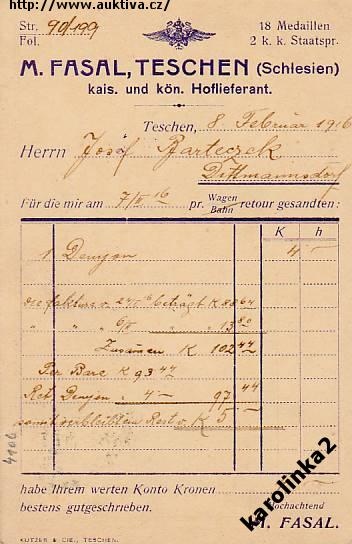 http://www.auktiva.cz/
Str. 90/199
Fol.
18 Medaillen
2 k. k. Staatspr.
M. FASAL, TESCHEN (Schlesien)
kais. und kön. Hoflieferant.
Teschen, 8 Februar 1916
Herrn Josef Barteczek
Dittmannsdorf
Für die mir am 7/II 16 pr. Wagen Bahn retour gesandten:
K h
1 4 —
die faktura v. beträgt K 88 64
" " 6/II " " 13 80
Zusamen K 102 44
Per Barc K 93 44
Ret. 4 — 97 44
somit verbleibt Rest v. K 5 —
4106
habe Ihrem werten Konto Kronen —
bestens gutgeschrieben.
Hochachtend
M. FASAL.
KUTZER & CIE., TESCHEN.
karolinka2